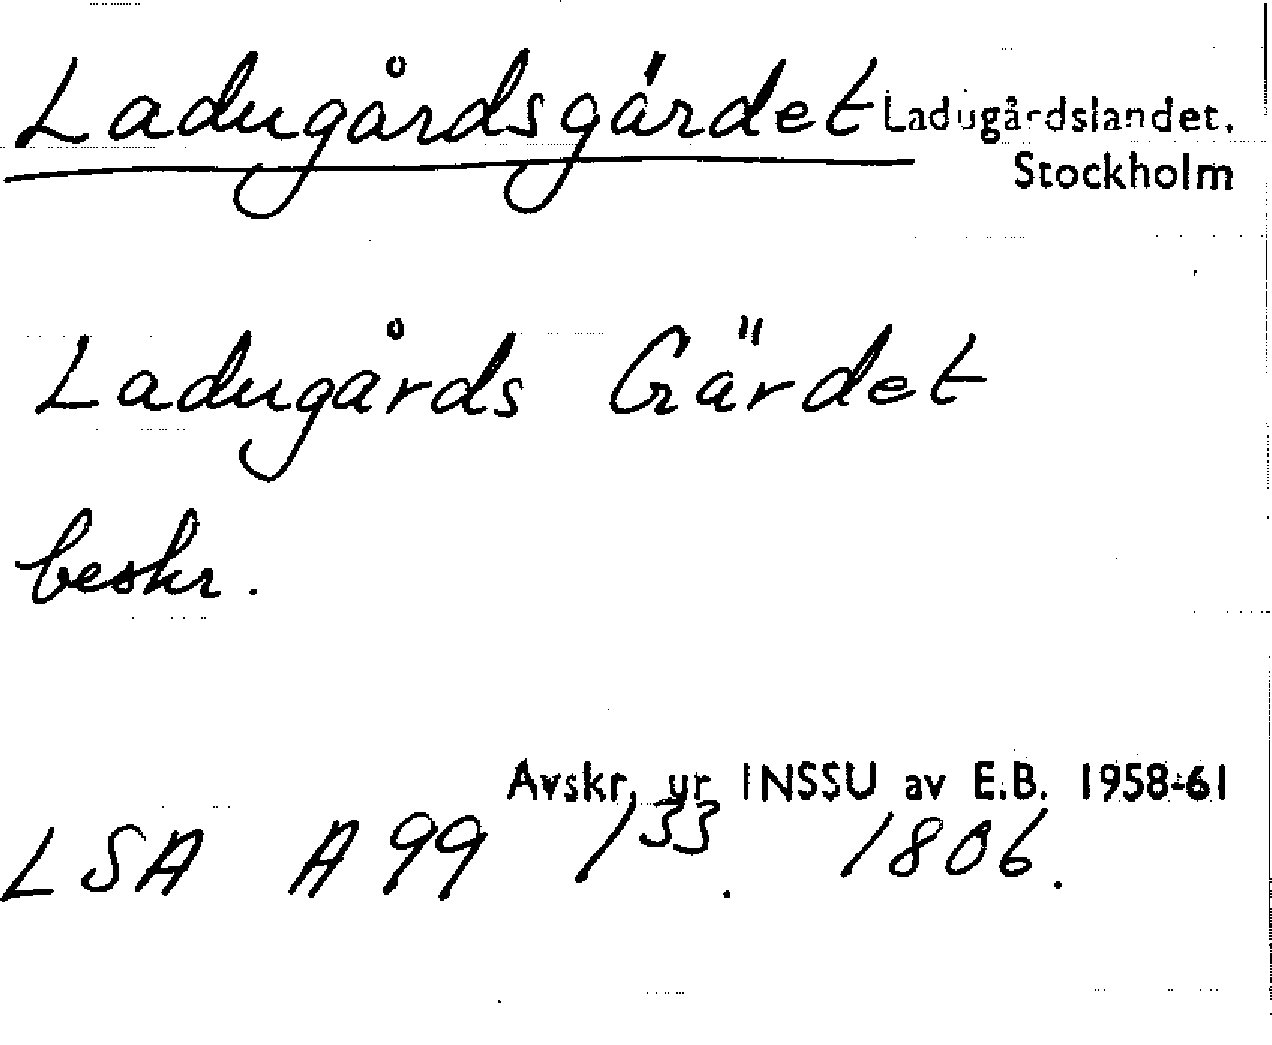 Ladugårdsgärdet Ladugårdslandet.
Stockholm
Ladugårds Gärdet
beskr.
Avskr. ur INSSU av E.B. 1958-61
LSA A 99 133. 1806.